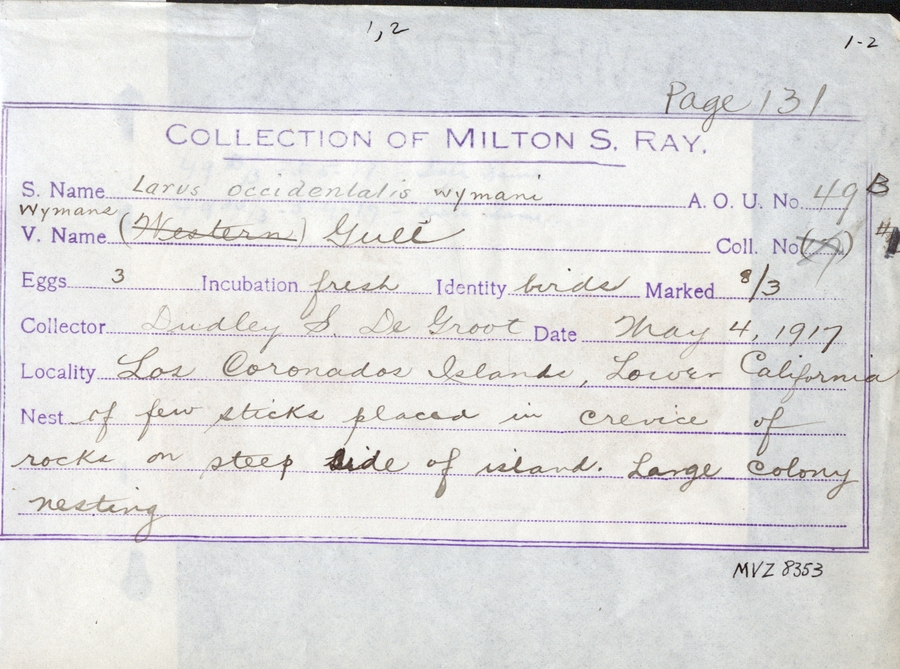 1,2
1-2
Page 131
COLLECTION OF MILTON S. RAY.
S. Name Larus occidentalis wymani A. O. U. No. 49 B
Wymans
V. Name (Western) Gull Coll. No
Eggs 3 Incubation fresh Identity birds Marked 8/3
Collector Dudley S. De Groot Date May 4, 1917
Locality Los Coronados Islands, Lower California
Nest of few sticks placed in crevice of
rocks on steep side of island. Large colony
nesting
MVZ 8353